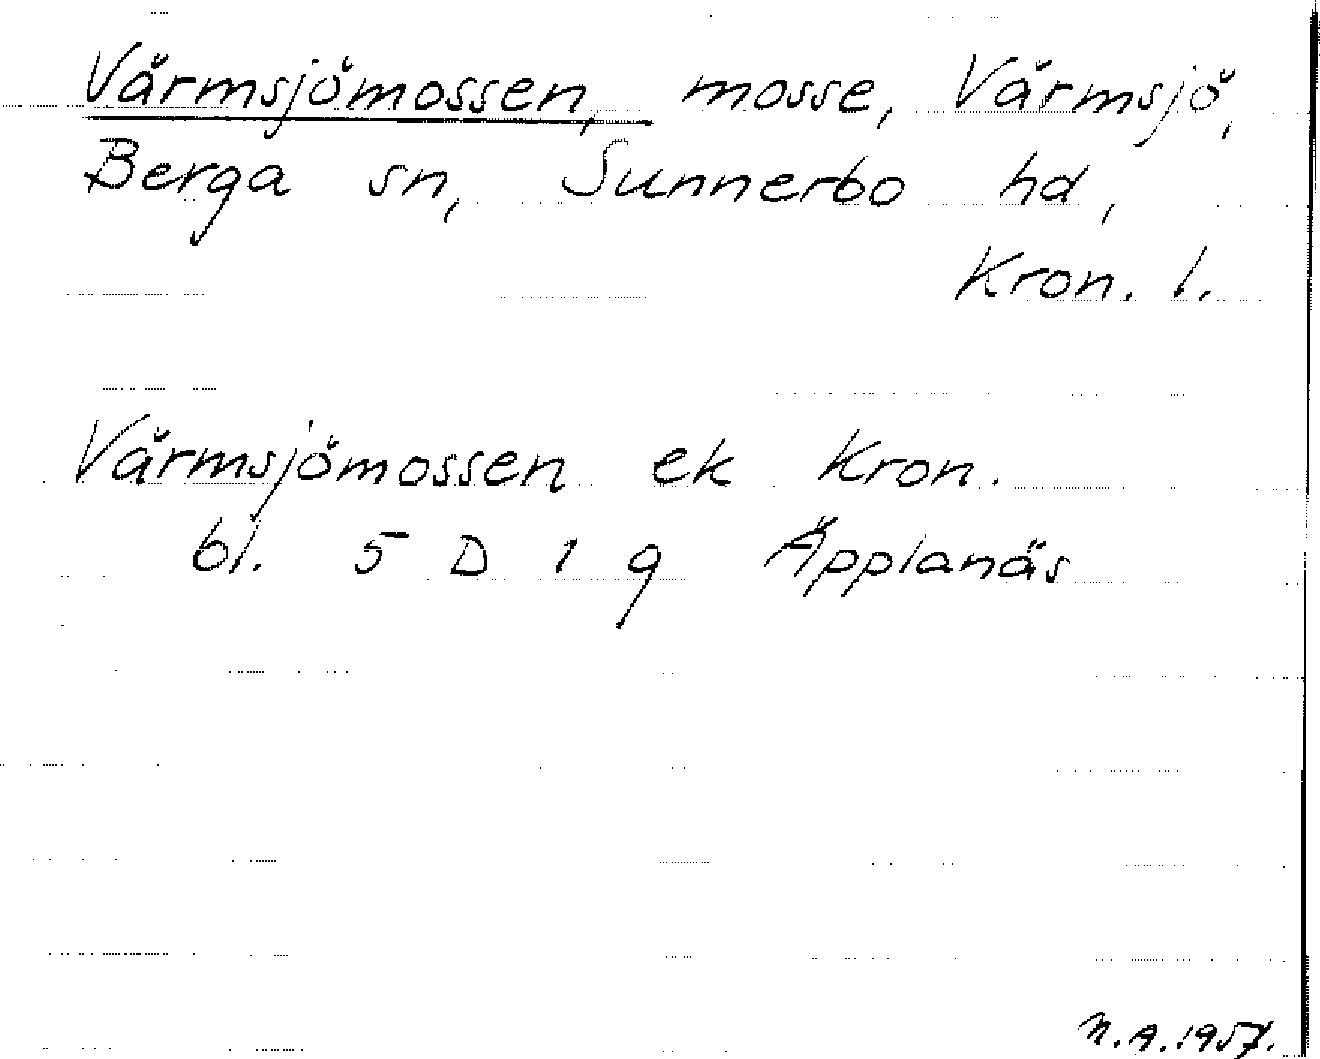 Värmsjömossen, mosse, Värmsjö,
Berga sn, Sunnerbo hd,
Kron. l.
Värmsjömossen ek Kron.
bl. 5 D 1 g Äpplanäs
N.A. 1957.